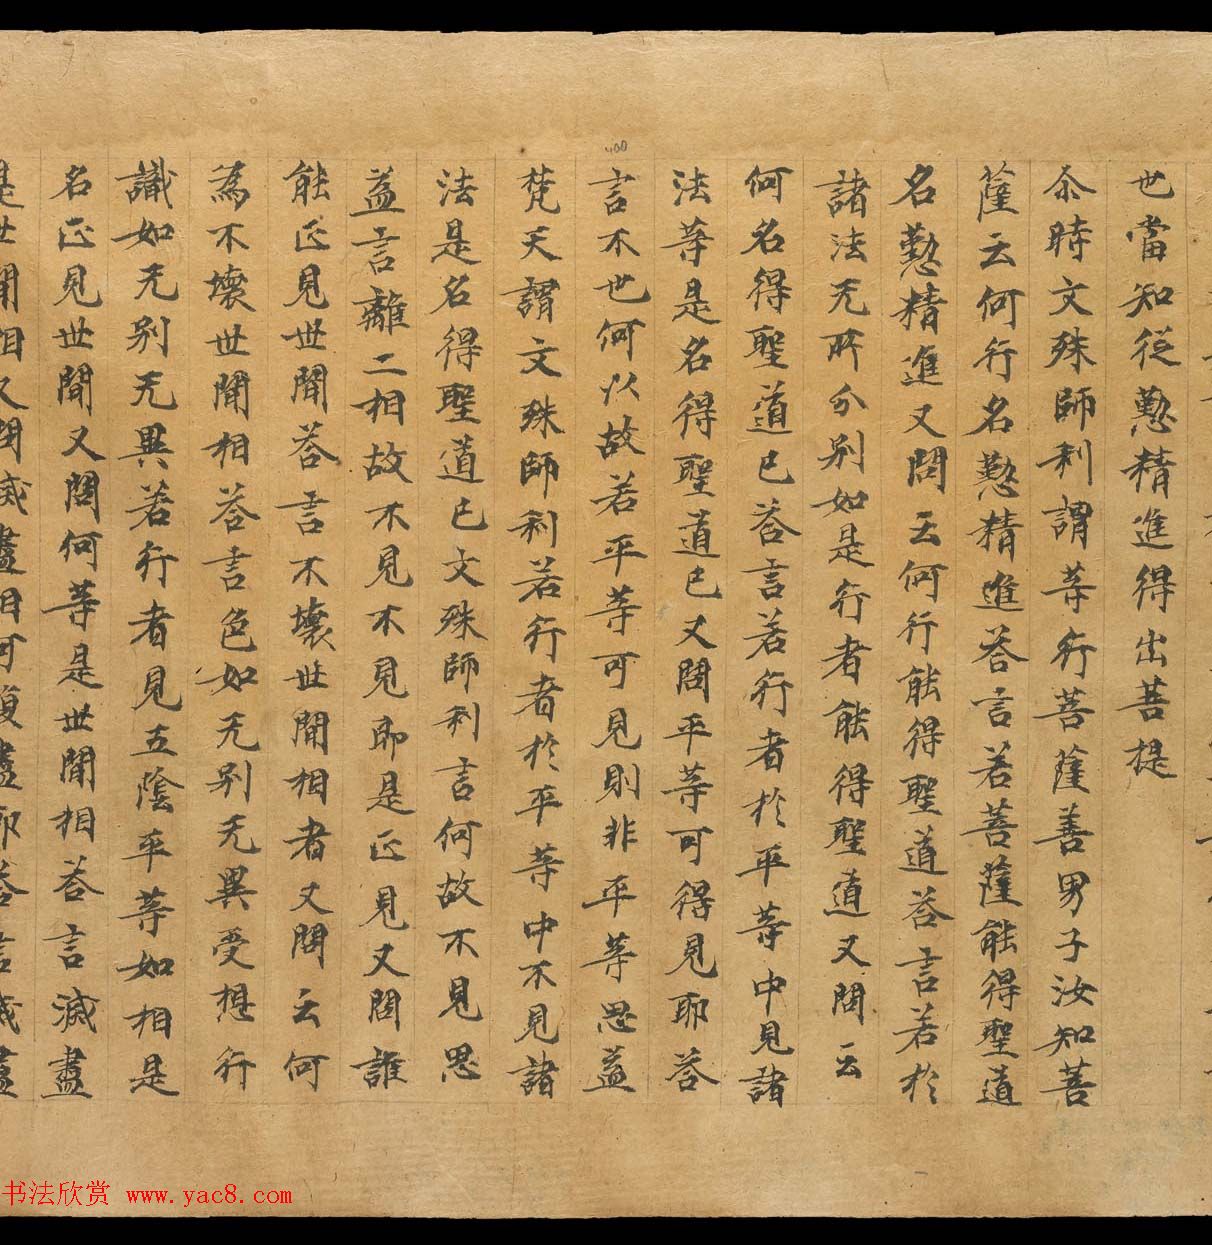 世當知從懃精進得出菩提
尒時文殊師利謂等行菩薩善男子汝知菩
薩云何行名懃精進荅言若菩薩能得聖道
名懃精進又問云何行能得聖道荅言若於
諸法无所分别如是行者能得聖道又問云
何名得聖道已荅言若行者於平等中見諸
法等是名得聖道已又問平等可得見耶荅
言不世何以故若平等可見則非平等思益
梵天謂文殊師利若行者於平等中不見諸
法是名得聖道已文殊師利言何故不見思
益言離二相故不見不見即是正見又問誰
能正見世間荅言不壞世間相者又問云何
為不壞世間相荅言色如无别无異受想行
識如无别无異若行者見五陰平等如相是
名正見世間又問何等是世間相荅言滅盡
是世間相又問滅盡相可復盡耶荅言滅盡
400
书法欣赏 www.yac8.com